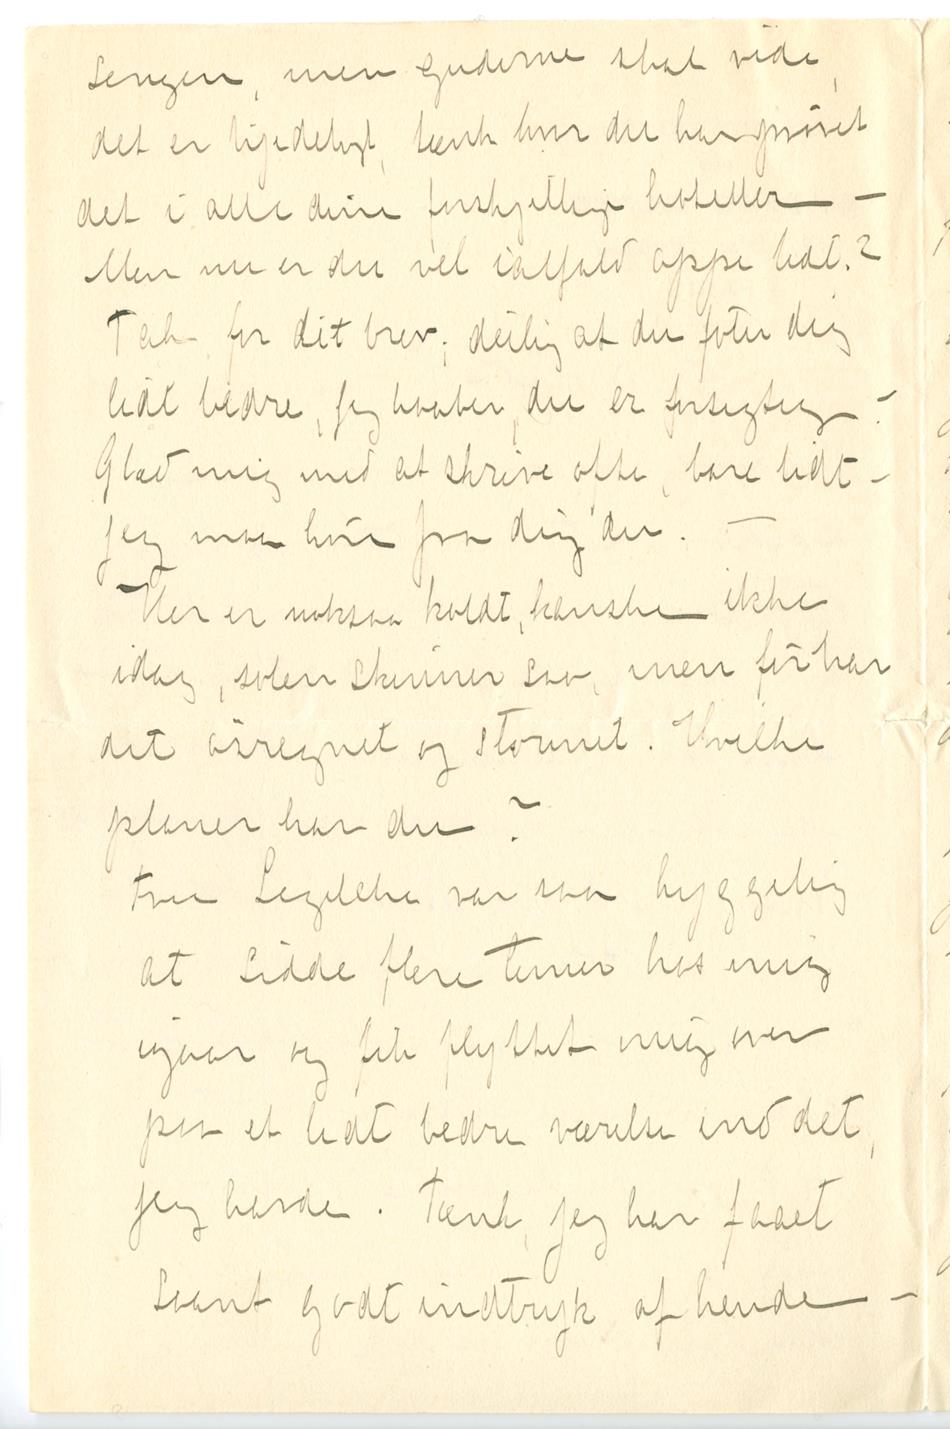 sengen, men guderne skal vide,
det er kjedeligt, tænk hvor du har prøvet
det i alle dine forskjellige hoteller —
Men nu er du vel ialfald oppe lidt.?
Tak for dit brev; deilig at du føler dig
lidt bedre, jeg haaber, du er forsigtig.
Glæd mig med at skrive ofte, bare lidt –
jeg maa høre fra dig du. —
Her er noksaa koldt, kanske ikke
idag, solen skinner saa, men før har
det øsregnet og stormet. Hvilke
planer har du ?
Fru var saa hyggelig
at sidde flere timer hos mig
igaar og fik flyttet mig over
paa et lidt bedre værelse end det,
jeg havde. Tænk, jeg har faaet
saant godt indtryk af hende —